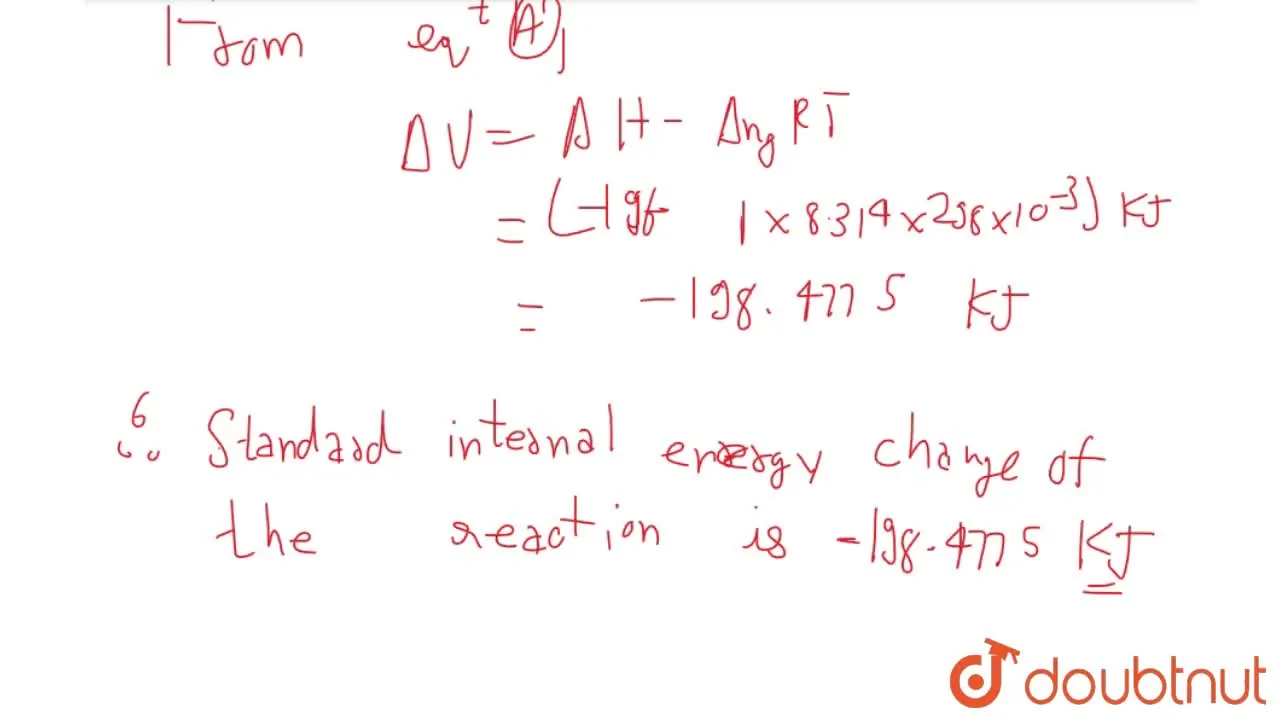 From eqt (A),
ΔU = ΔH - Δng RT
= (-196 1 × 8.314 × 298 × 10-3) KJ
= -198.4775 KJ
∴ Standard internal energy change of
the reaction is -198.4775 KJ
doubtnut